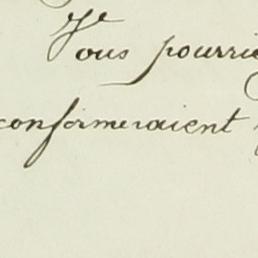 Vous pourrie
conformeraient